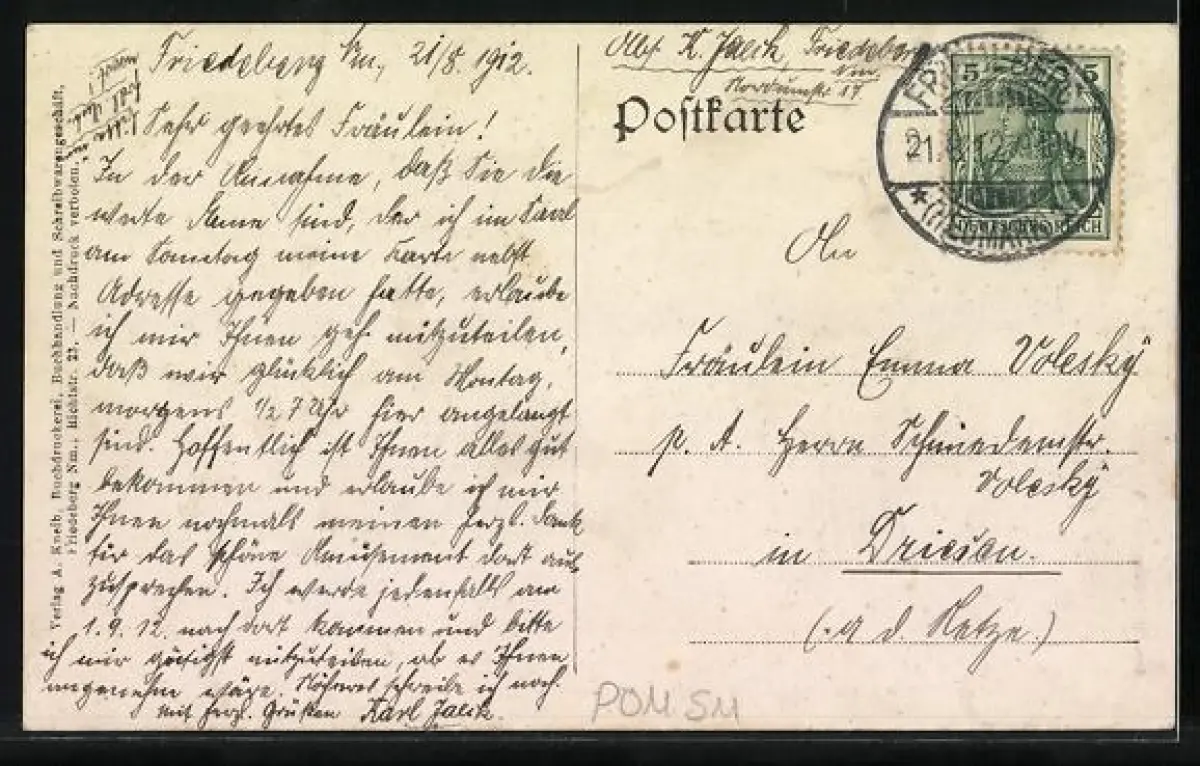 Friedeberg Nm., 21/8. 1912.
Sehr geehrtes Fräulein!
In der Annahme, daß Sie die
werte Dame sind, der ich im Saal
am Sonntag meine Karte nebst
Adresse gegeben hatte, erlaube
ich mir Ihnen geh. mitzuteilen,
daß wir glücklich am Montag,
morgens 1/2 7 Uhr hier angelangt
sind. Hoffentlich ist Ihnen alles gut
bekommen und erlaube ich mir
Ihnen nochmals meinen herzl. Dank
für das schöne Amüsement dort aus
zusprechen. Ich werde jedenfalls am
1.9.12. nach dort kommen und bitte
ich mir gütigst mitzuteilen, ob es Ihnen
angenehm wäre. Näheres schreibe ich noch.
Mit herzl. Grüßen Karl Jaeck.
Verlag A. Kneib, Buchdruckerei, Buchhandlung und Schreibwarengeschäft,
Friedeberg Nm., Richtstr. 23. — Nachdruck verboten.
Abs. K. Jaeck, Friedeberg
Nm.
14
Postkarte
5 5
DEUTSCHES REICH
FRIEDEBERG
21.8.12
* (NEUMARK)
An
Fräulein Emma Volesky
p. A. Herrn Schmiedemstr.
Volesky
in Driesen.
(a. d. Netze)
POM SM